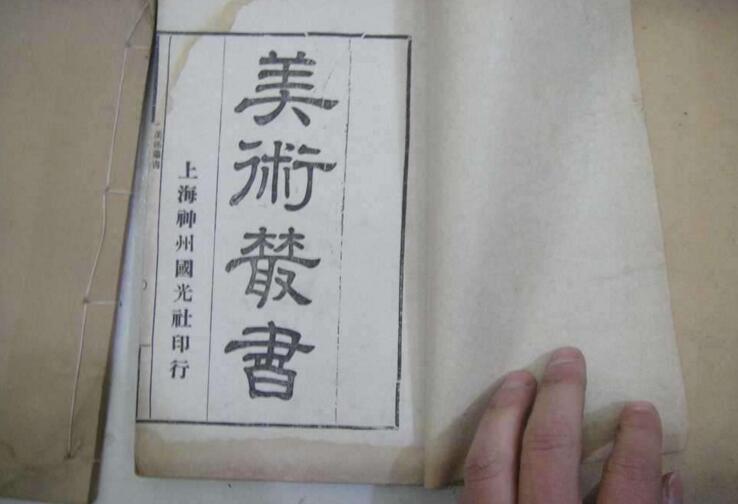 美術叢書
上海神州國光社印行